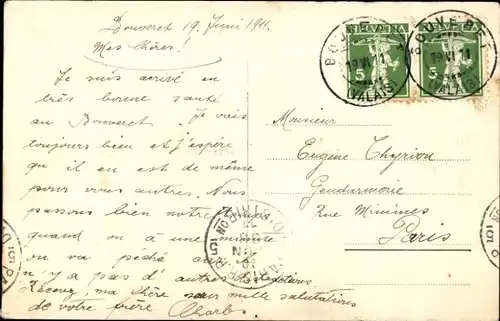 Bouveret 19 Juni 1911.
Mes chères!
Je suis arrivé en
très bonne santé
au Bouveret. Je vais
toujours bien et j'espère
qu'il en est de même
pour vous autres. Nous
passons bien notre temps
quand on a une minute
on va pecher car il
n'y a pas d'autres distractions.
Recevez, ma chère sœur mille salutations
de votre frère Charles
HELVETIA
5
HELVETIA
5
BOUVERET
19 VI 11
(VALAIS)
BOUVERET
19 VI 11
(VALAIS)
Monsieur
Eugène Thyriou
Gendarmerie
Rue Minimes
Paris